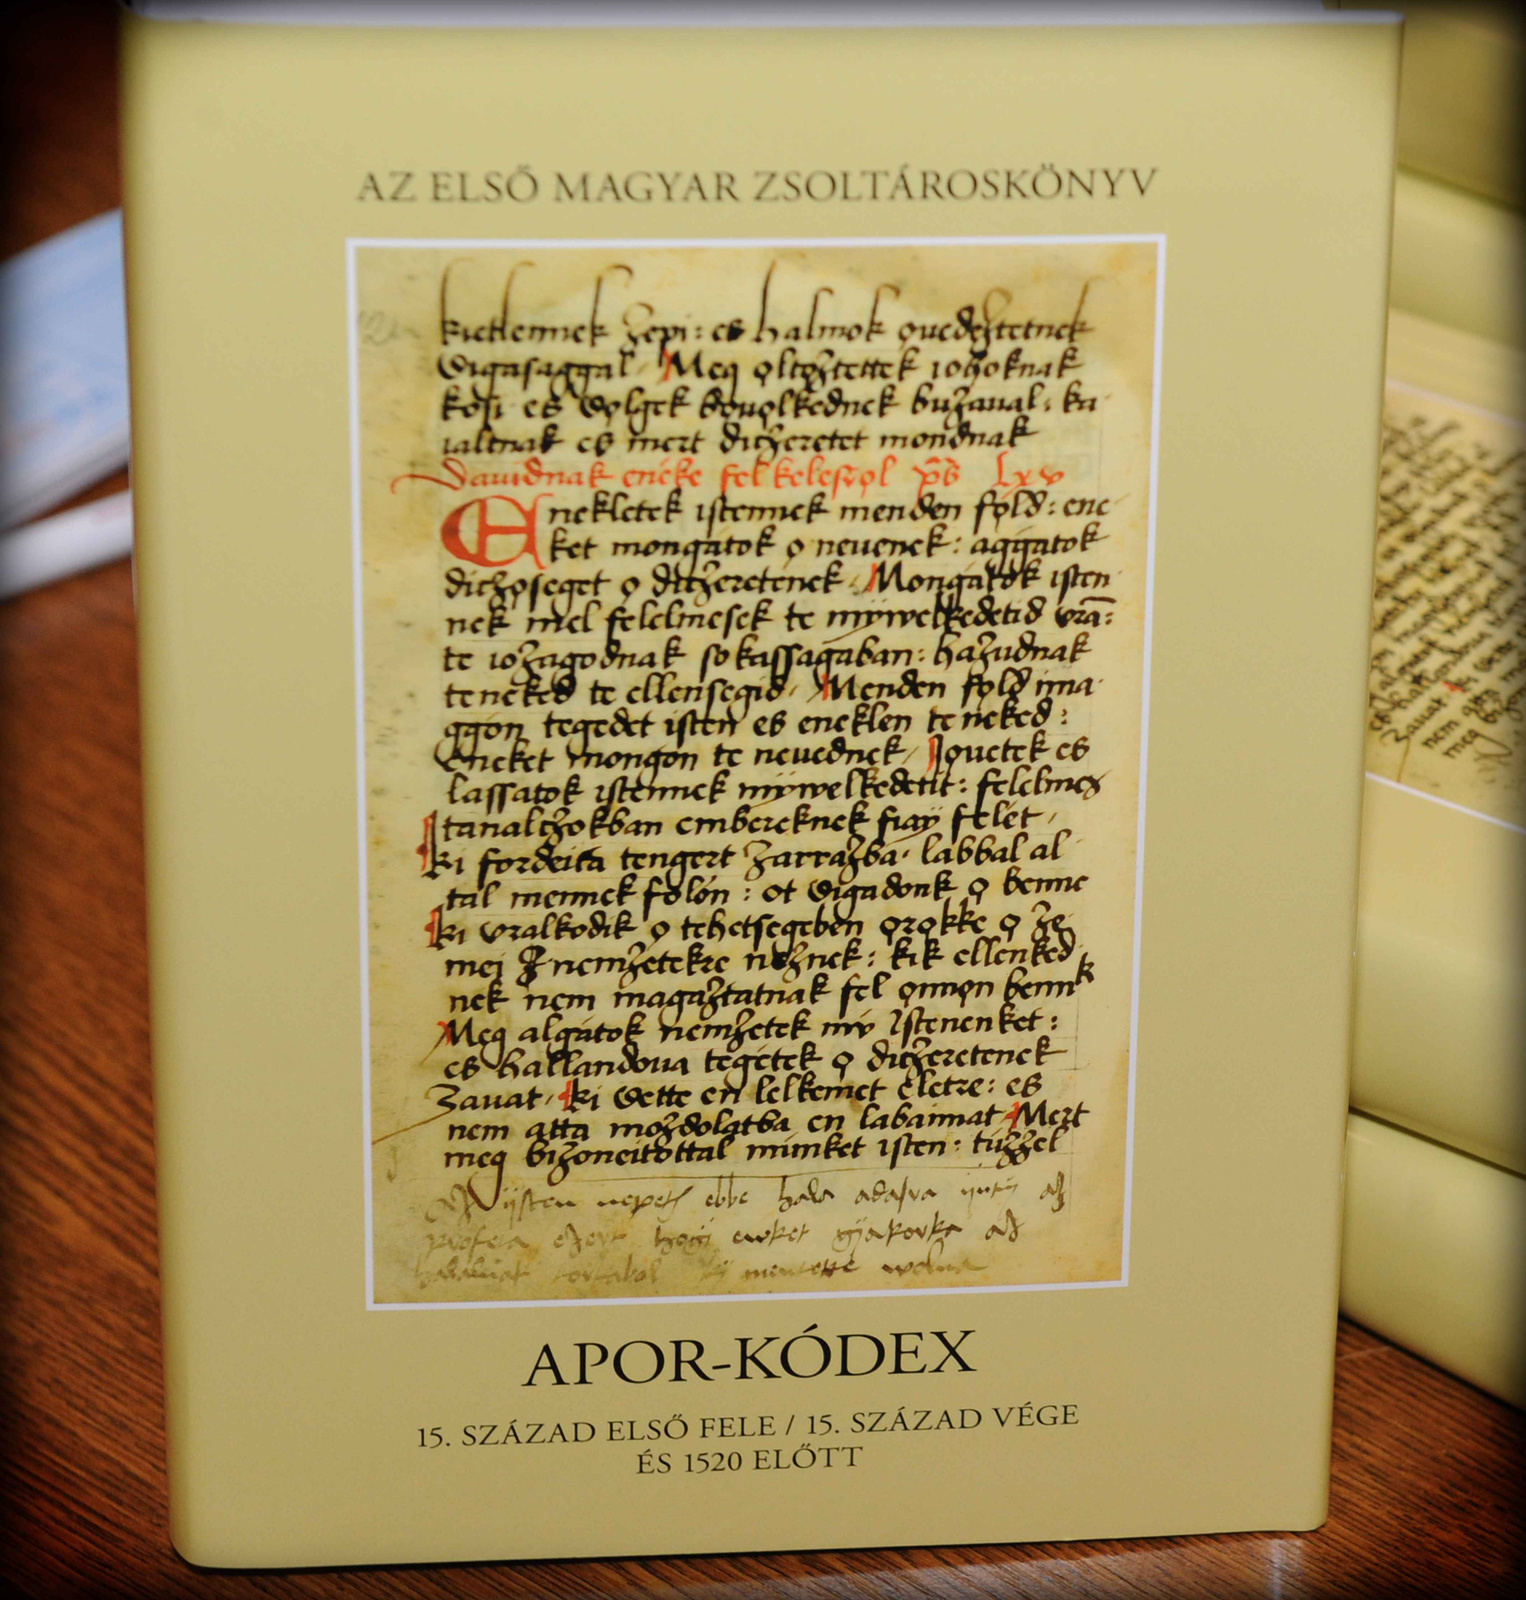 AZ ELSŐ MAGYAR ZSOLTÁROSKÖNYV
kietlennek zepi : es halmok ǫvedeztetnek
vigasaggal Meg ǫltǫztettek iohoknak
kosi es vǫlgek bǫuǫlkednek buzaual : ka
ialtnak es mert dichzeretet mondnak
dauidnak eneke fel kelesrǫl ps lxv
Enekletek istennek menden fǫld : ene
ket mongatok ǫ neuenek : aggatok
dichǫseget ǫ dichzeretenek Mongatok isten
nek mel felelmesek te mÿwelkedetid vrā :
te iozagodnak sokassagaban : hazudnak
teneked te ellensegid Menden fǫld ima
ggon tegedet isten es eneklen teneked :
Eneket mongon te neuednek Iǫuetek es
lassatok istennek mÿwelkedetit : felelmes
tanalchokban embereknek fiaÿ felet
ki fordeita tengert zarrazba labbal al
tal mennek folon : ot vigadonk ǫ benne
ki vralkodik ǫ tehetsegeben ǫrǫkke ǫ ze
mei nemzetekre neznek : kik ellenked
nek nem magaztatnak fel ǫnnǫn bennek
Meg algatok nemzetek mÿ Istenenket :
es hallandova tegetek ǫ dichzeretenek
zauat ki vette en lelkemet eletre : es
nem atta mozdolatba en labaimat Mert
meg bizoneitottal minket isten : tuzzel
ÿsten nepet ebbe hala adasra az
profeta ezert hogÿ ewket gÿakorta az
mentette wolna
APOR-KÓDEX
15. SZÁZAD ELSŐ FELE / 15. SZÁZAD VÉGE
ÉS 1520 ELŐTT